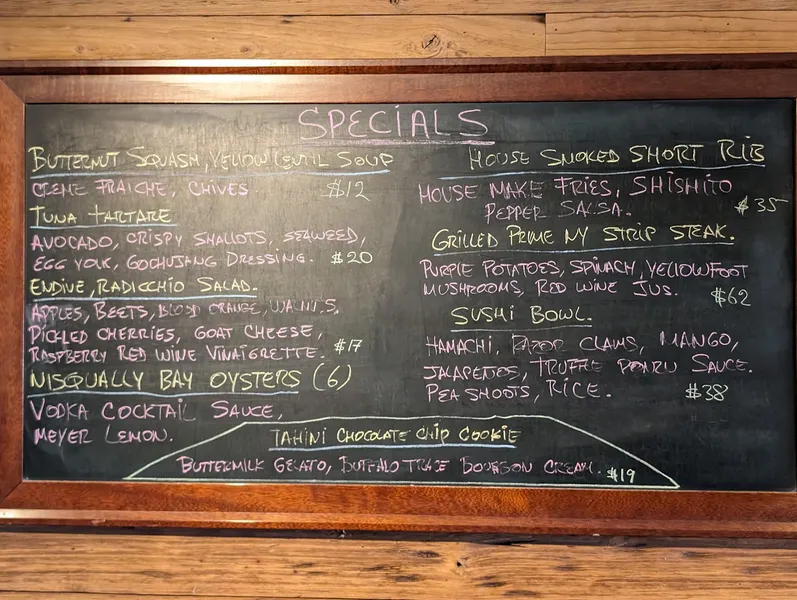 SPECIALS
BUTTERNUT SQUASH, YELLOW LENTIL SOUP
CREME FRAICHE, CHIVES. $12
TUNA TARTARE
AVOCADO, CRISPY SHALLOTS, SEAWEED,
EGG YOLK, GOCHUJANG DRESSING. $20
ENDIVE, RADICCHIO SALAD.
APPLES, BEETS, BLOOD ORANGE, WALNUTS,
PICKLED CHERRIES, GOAT CHEESE,
RASPBERRY RED WINE VINAIGRETTE. $17
NISQUALLY BAY OYSTERS (6)
VODKA COCKTAIL SAUCE,
MEYER LEMON.
HOUSE SMOKED SHORT RIB
HOUSE MAKE FRIES, SHISHITO
PEPPER SALSA. $35
GRILLED PRIME NY STRIP STEAK.
PURPLE POTATOES, SPINACH, YELLOWFOOT
MUSHROOMS, RED WINE JUS. $62
SUSHI BOWL.
HAMACHI, RAZOR CLAMS, MANGO,
JALAPEÑOS, TRUFFLE PONZU SAUCE.
PEA SHOOTS, RICE. $38
TAHINI CHOCOLATE CHIP COOKIE
BUTTERMILK GELATO, BUFFALO TRACE BOURBON CREAM. $19